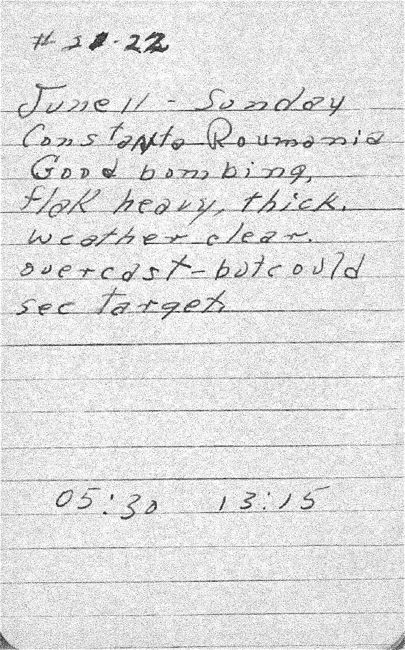 # 21-22
June 11 - Sunday
Constanta Roumania
Good bombing,
flak heavy, thick.
weather clear.
overcast - but could
see target.
05:30 13:15